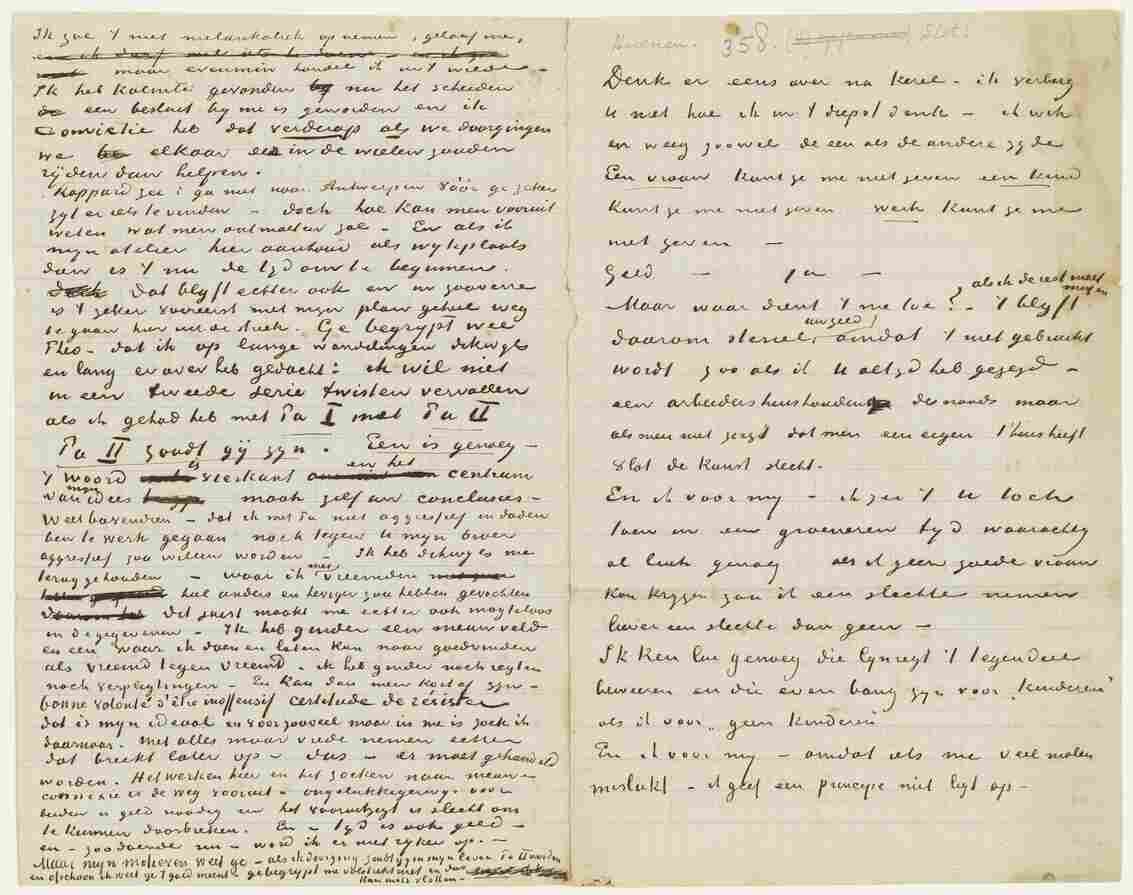 Ik zoe 't niet melankolich opnemen, geloof me,
maar evenmin houdt ik in 't wilde
Ik heb kalmte gevonden nu het scheiden
een besluit by me is geworden en ik
Convictie heb dat verderop als we doorgingen
we elkaar in de wielen zouden
rijden dan helpen.
Rappard zei ga niet naar Antwerpen vóór ge zeker
zyt er iets te vinden – doch hoe kan men vooruit
weten wat men ontmoeten zal – En als ik
myn atelier hier aanhoud als wykplaats
dan is 't nu de tyd om te beginnen.
Dat blyft echter ook en in zooverre
is 't zeker vooreerst niet myn plan geheel weg
te gaan hier uit de streek. Ge begrypt wel
Theo – dat ik op lange wandelingen dikwyls
en lang er over heb gedacht: ik wil niet
in een tweede serie twisten vervallen
als ik gehad heb met Pa I met Pa II
Pa II zoudt gij zyn. Een is genoeg –
't woord is vierkant en het centrum
van myn idees maak zelf uw conclusies –
Weet bovendien – dat ik met Pa niet aggressief in daden
ben te werk gegaan noch tegen U myn broer
aggressief zou willen worden – Ik heb dikwyls me
terug gehouden – waar ik met vreemden
heel anders en heviger zou hebben gevochten
dit juist maakt me echter ook magteloos
in de gegevenen – Ik heb ginder een nieuw veld
en een waar ik doen en laten kan naar goedvinden
als vreemd tegen vreemd. ik heb ginder noch regten
noch verpligtingen – En kan dan meer kort af zyn –
bonne volonté d'être inoffensif certitude de résister
dat is myn ideaal en voor zooveel maar in me is zoek ik
daarnaar. Met alles maar vrede nemen echter
dat breekt later op – dus – er moet gehandeld
worden. Het werken hier en het zoeken naar nieuwe
connexie is de weg vooruit – ongelukkigerwijs voor
beiden is geld noodig en het vooruitzigt is slecht om
te kunnen doorbreken. En – tyd is ook geld –
en – zoodoende nu – word ik er niet ryker op. –
Maar myn motieven weet ge – als ik doorging zoudt gy in myn leven Pa II worden
en ofschoon ik weet ge 't goed meent – ge begrypt me volstrekt niet en dus
kan niets vlotten –
Nuenen. 358. Slot!
Denk er eens over na kerel – ik verberg
U niet hoe ik in 't diepst denk – ik wik
en weeg zoowel de een als de andere zyde
Een vrouw kunt ge me niet geven een kind
kunt ge me niet geven werk kunt ge me
niet geven –
Geld – ja –
Maar waar dient 't me toe? als ik de rest moet
missen – 't blyft
uw geld
daarom steriel, omdat 't niet gebruikt
wordt zoo als ik U altyd heb gezegd –
een arbeiders huishouden des noods maar
als men niet zorgt dat men een eigen t'huis heeft
slot de kunst slecht.
En ik voor my – ik zei 't U toch
toen in een groeneren tyd waarachtig
al luid genoeg als ik geen goede vrouw
kan krygen zou ik een slechte nemen
liever een slechte dan geen –
Ik ken lui genoeg die lynregt 't tegendeel
beweren en die even bang zyn voor „kinderen”
als ik voor „geen kinderen”
En ik voor my – omdat als me veel malen
mislukt – ik geef een principe niet ligt op –